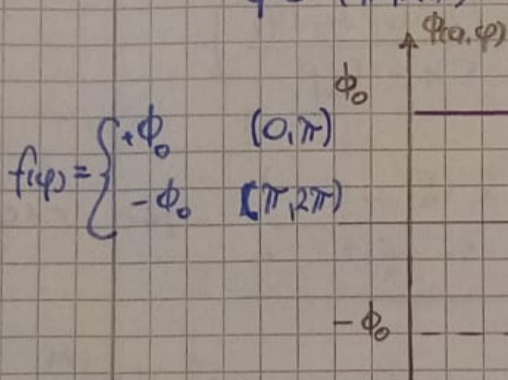 ϕ(a,φ)
ϕ₀
f(φ) = { +ϕ₀ (0,π)
-ϕ₀ (π,2π)
-ϕ₀